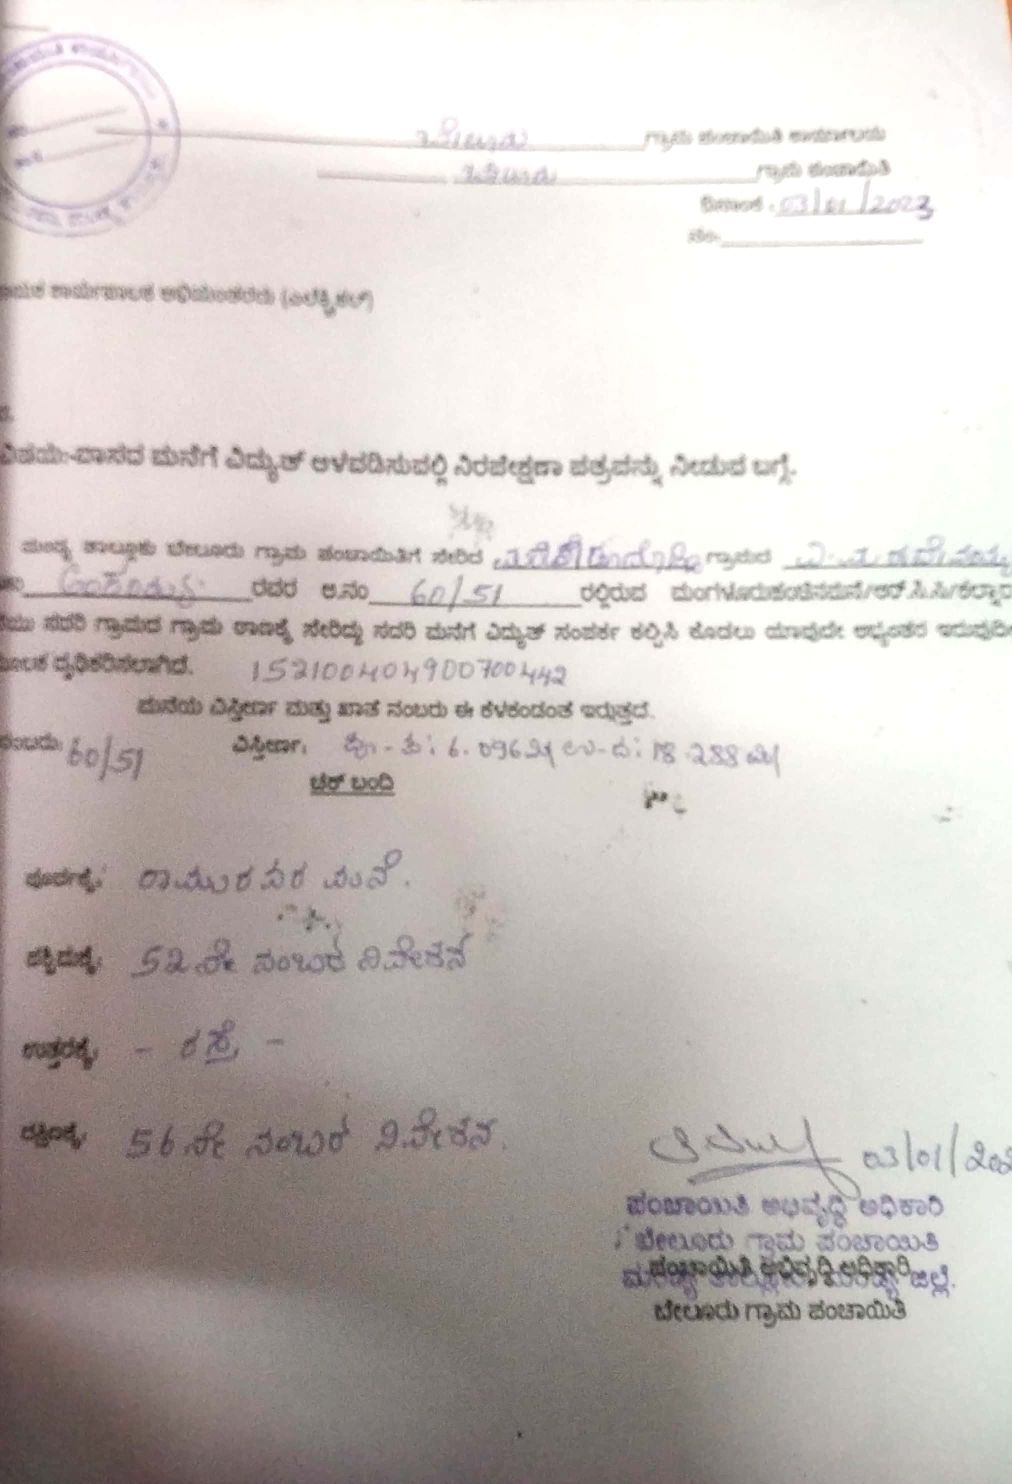 ಬೇಲೂರು ಗ್ರಾಮ ಪಂಚಾಯಿತಿ ಕಾರ್ಯಾಲಯ
ಬೇಲೂರು ಗ್ರಾಮ ಪಂಚಾಯಿತಿ
ದಿನಾಂಕ : 03/01/2023
ನಂ:
ಕಾರ್ಯಪಾಲಕ ಅಭಿಯಂತರರು (ಎಲೆಕ್ಟ್ರಿಕಲ್)
ವಿಷಯ:-ವಾಸದ ಮನೆಗೆ ವಿದ್ಯುತ್ ಅಳವಡಿಸುವಲ್ಲಿ ನಿರಪೇಕ್ಷಣಾ ಪತ್ರವನ್ನು ನೀಡುವ ಬಗ್ಗೆ.
ಮಂಡ್ಯ ತಾಲ್ಲೂಕು ಬೇಲೂರು ಗ್ರಾಮ ಪಂಚಾಯಿತಿಗೆ ಸೇರಿದ ಗ್ರಾಮದ
ರವರ ಅ.ನಂ 60/51 ರಲ್ಲಿರುವ ಮಂಗಳೂರುಹಂಚಿನಮನೆ/ಆರ್.ಸಿ.ಸಿ/ಕಲ್ನಾರ
ಸದರಿ ಗ್ರಾಮದ ಗ್ರಾಮ ಠಾಣಕ್ಕೆ ಸೇರಿದ್ದು ಸದರಿ ಮನೆಗೆ ವಿದ್ಯುತ್ ಸಂಪರ್ಕ ಕಲ್ಪಿಸಿ ಕೊಡಲು ಯಾವುದೇ ಅಭ್ಯಂತರ
ದೃಢಿಕರಿಸಲಾಗಿದೆ. 152100404900700442
ಮನೆಯ ವಿಸ್ತೀರ್ಣ ಮತ್ತು ಖಾತೆ ನಂಬರು ಈ ಕೆಳಕಂಡಂತೆ ಇರುತ್ತದೆ.
ನಂಬರು: 60/51 ವಿಸ್ತೀರ್ಣ: ಪೂ-ಪ: 6.096ಮೀ ಉ-ದ: 18.288 ಮೀ
ಚೆಕ್ ಬಂದಿ
ಪೂರ್ವಕ್ಕೆ: ರಾಮುರವರ ಮನೆ.
ಪಶ್ಚಿಮಕ್ಕೆ: 52ನೇ ನಂಬರ್ ನಿವೇಶನ
ಉತ್ತರಕ್ಕೆ: - ರಸ್ತೆ -
ದಕ್ಷಿಣಕ್ಕೆ: 56ನೇ ನಂಬರ್ ನಿವೇಶನ.
03/01/202
ಪಂಚಾಯಿತಿ ಅಭಿವೃದ್ಧಿ ಅಧಿಕಾರಿ
ಬೇಲೂರು ಗ್ರಾಮ ಪಂಚಾಯಿತಿ
ಪಂಚಾಯಿತಿ ಅಭಿವೃದ್ಧಿ ಅಧಿಕಾರಿ
ಮಂಡ್ಯ ತಾಲ್ಲೂಕು, ಮಂಡ್ಯ ಜಿಲ್ಲೆ.
ಬೇಲೂರು ಗ್ರಾಮ ಪಂಚಾಯಿತಿ